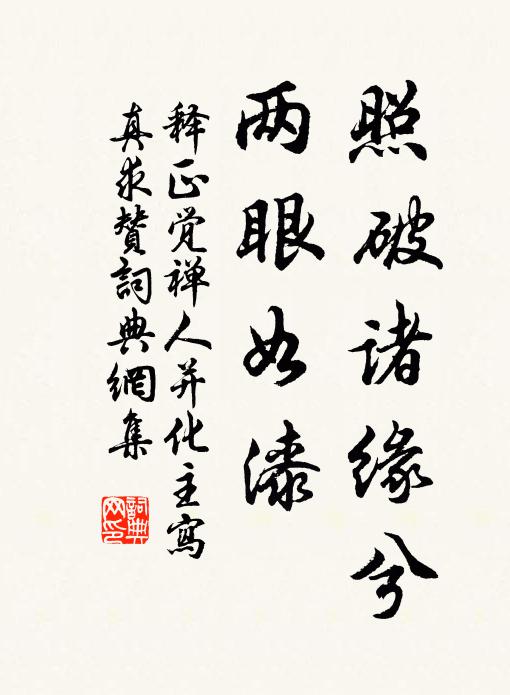 照破诸缘兮
两眼如漆
释正觉禅人并化主寫
真求赞詞典網集
詞典
网印